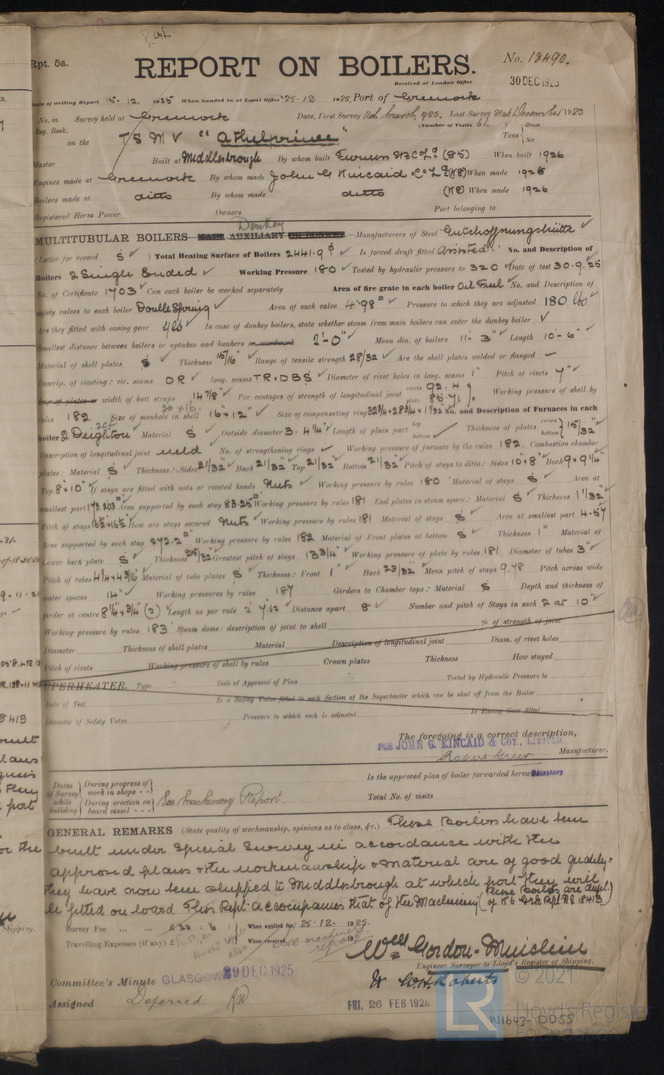 Rpt. 5a.
REPORT ON BOILERS.
No. 18490.
Received at London Office
30 DEC 1925
Date of writing Report 15.12.1925 When handed in at Local Office 25.12.1925. Port of Greenock
No. in Survey held at Greenock Date, First Survey 11th March 1925. Last Survey 21st December 1925
Reg. Book. (Number of Visits 61)
on the T S M V "Athelprince" Tons Gross Net
Master Built at Middlesbrough By whom built When built 1926
Engines made at Greenock By whom made John G Kincaid & Co Ld When made 1926
Boilers made at ditto By whom made ditto When made 1926
Registered Horse Power Owners Port belonging to
Donkey
MULTITUBULAR BOILERS MAIN, AUXILIARY OR DONKEY.—Manufacturers of Steel Gutehoffnungshütte
(Letter for record S) Total Heating Surface of Boilers 2441.9 Is forced draft fitted Assisted No. and Description of
Boilers 2 Single Ended Working Pressure 180 Tested by hydraulic pressure to 320 Date of test 30.9.25
No. of Certificate 1703 Can each boiler be worked separately Area of fire grate in each boiler Oil Fuel No. and Description of
safety valves to each boiler Double Spring Area of each valve 4.98 Pressure to which they are adjusted 180
Are they fitted with easing gear yes In case of donkey boilers, state whether steam from main boilers can enter the donkey boiler
Smallest distance between boilers or uptakes and bunkers or woodwork 2'-0" Mean dia. of boilers 11'-3" Length 10'-6"
Material of shell plates S Thickness 15/16" Range of tensile strength 28/32 Are the shell plates welded or flanged —
Descrip. of riveting: cir. seams DR long. seams TR.DBS Diameter of rivet holes in long. seams 1" Pitch of rivets 7"
Lap of plates or width of butt straps 14 7/8" Per centages of strength of longitudinal joint rivets 92.4 plate 85.71 Working pressure of shell by
rules 182 Size of manhole in shell 16" x 12" Size of compensating ring No. and Description of Furnaces in each
boiler 2 Deighton Material S Outside diameter Length of plain part top bottom Thickness of plates crown bottom 15/32"
Description of longitudinal joint weld No. of strengthening rings Working pressure of furnace by the rules 182 Combustion chamber
plates: Material S Thickness: Sides 21/32" Back 21/32" Top 21/32" Bottom 21/32" Pitch of stays to ditto: Sides 10" x 8" Back 9 x 9 1/4"
Top 8" x 10" If stays are fitted with nuts or riveted heads Nuts Working pressure by rules 180 Material of stays S Area at
smallest part Area supported by each stay 83.25 Working pressure by rules 181 End plates in steam space: Material S Thickness 1 1/32"
Pitch of stays 16.5 x 16.5 How are stays secured Nuts Working pressure by rules 181 Material of stays S Area at smallest part 4.57
Area supported by each stay 272.2 Working pressure by rules 182 Material of Front plates at bottom S Thickness 1" Material of
Lower back plate S Thickness 25/32 Greatest pitch of stays 13 3/4" Working pressure of plate by rules 181 Diameter of tubes 3"
Pitch of tubes Material of tube plates S Thickness: Front 1" Back 23/32" Mean pitch of stays 9.78 Pitch across wide
water spaces 14" Working pressures by rules 187 Girders to Chamber tops: Material S Depth and thickness of
girder at centre 8 1/4 x 3/4 (2) Length as per rule Distance apart 8 Number and pitch of Stays in each 2 at 10"
Working pressure by rules 183 Steam dome: description of joint to shell % of strength of joint
Diameter Thickness of shell plates Material Description of longitudinal joint Diam. of rivet holes
Pitch of rivets Working pressure of shell by rules Crown plates Thickness How stayed
SUPERHEATER. Type Date of Approval of Plan Tested by Hydraulic Pressure to
Date of Test Is a Safety Valve fitted to each Section of the Superheater which can be shut off from the Boiler
Diameter of Safety Valve Pressure to which each is adjusted Is Easing Gear fitted
The foregoing is a correct description,
FOR JOHN G. KINCAID & COY., LIMITED
Manufacturer.
Directors
Dates of Survey while building During progress of work in shops - - During erection on board vessel - - - See Machinery Report. Is the approved plan of boiler forwarded herewith
Total No. of visits
GENERAL REMARKS (State quality of workmanship, opinions as to class, &c.) These Boilers have been
built under Special Survey in accordance with the
approved plans & the workmanship & material are of good quality.
They have now been shipped to Middlesbrough at which port they will
be fitted on board This Rept. accompanies that of the Machinery (These Boilers are dupl.
of No 6 Grk Rpt No 18413)
Survey Fee ... ... £ : : When applied for, 25.12.1925.
Travelling Expenses (if any) £ : : When received,
Wm Gordon-Muislein
Engineer Surveyor to Lloyd's Register of Shipping.
& W. H. Roberts
Committee's Minute GLASGOW 29 DEC 1925
Assigned Deferred
FRI. 26 FEB 1926
© 2021
Lloyd's Register
Foundation
LR
W1643-0055